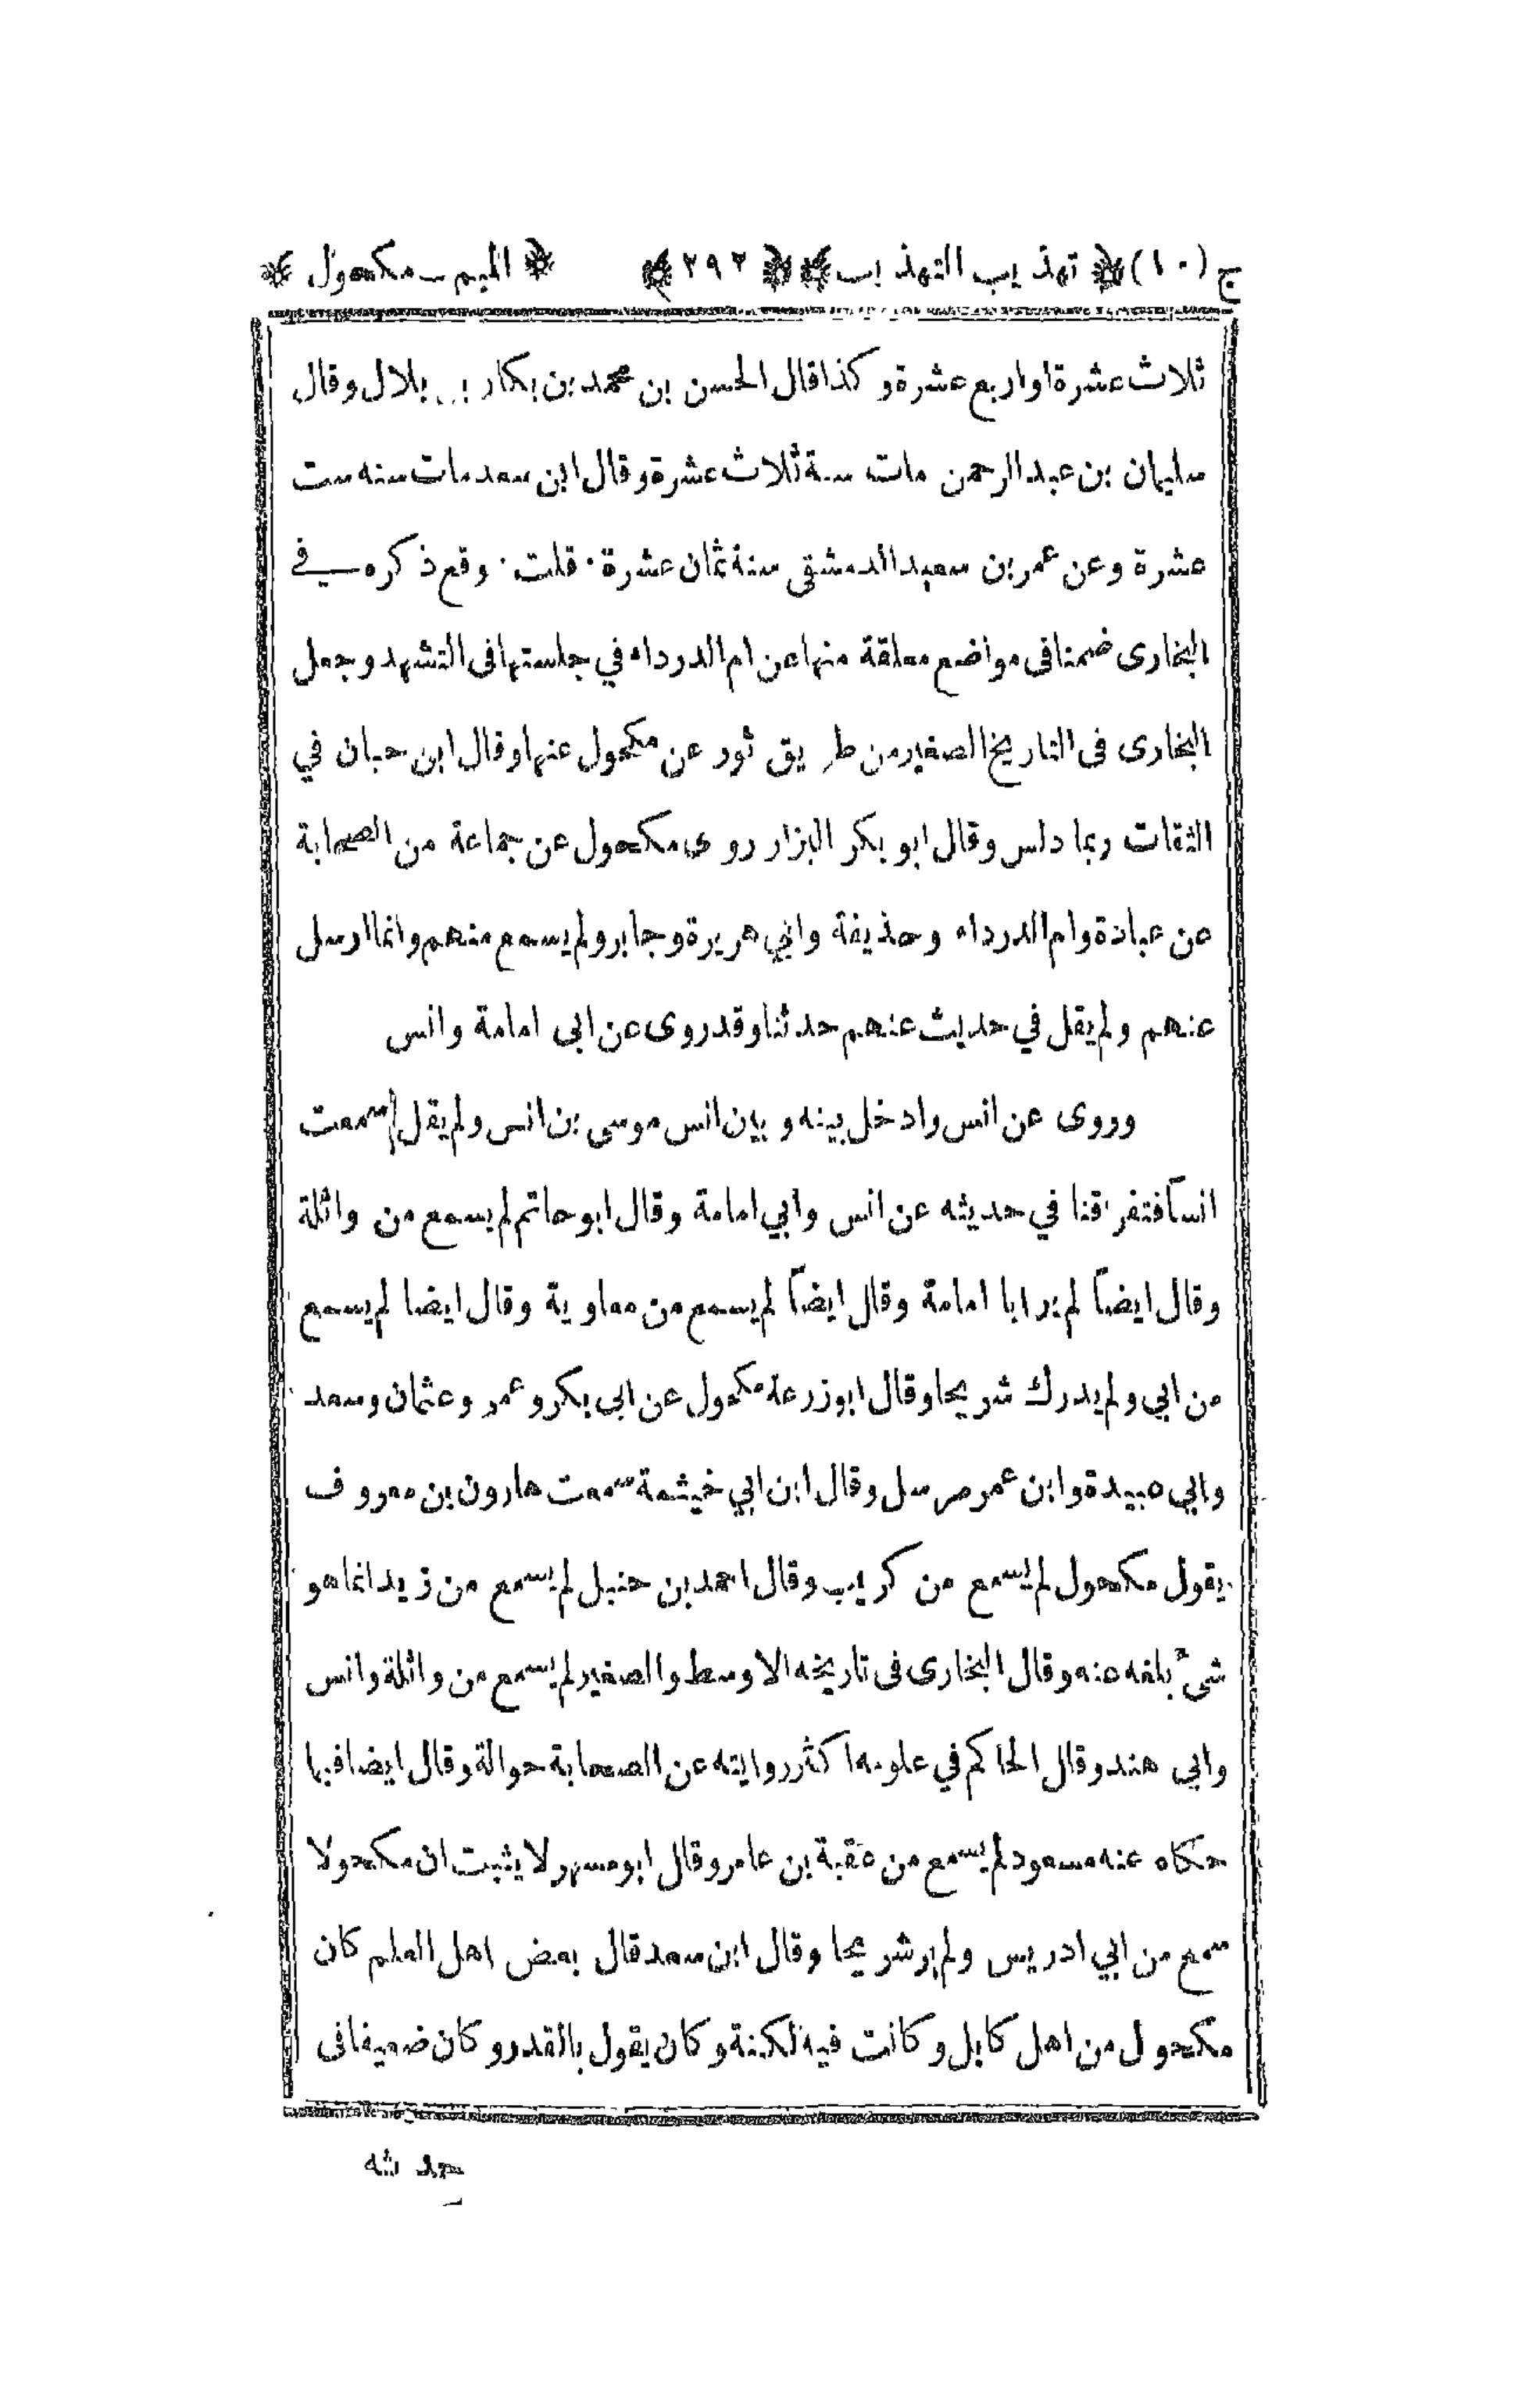 ج (١٠) تهذيب التهذيب ٢٩٢ الميم ـ مكحول
ثلاث عشرة او اربع عشرة وكذا قال الحسن بن محمد بن بكار بن بلال وقال
سليمان بن عبد الرحمن مات سنة ثلاث عشرة وقال ابن سعد مات سنه ست
عشرة وعن عمر بن سعيد الدمشقى سنة ثمان عشرة · قلت · وقع ذكره في
البخارى ضمنا فى مواضع معلقة منها عن ام الدرداء في جلستها فى التشهد وجعل
البخارى فى التاريخ الصغير من طريق ثور عن مكحول عنها وقال ابن حبان في
الثقات ربما دلس وقال ابو بكر البزار روى مكحول عن جماعة من الصحابة
عن عبادة وام الدرداء وحذيفة وابي هريرة وجابر ولم يسمع منهم وانما ارسل
عنهم ولم يقل في حديث عنهم حدثنا وقد روى عن ابى امامة وانس
وروى عن انس وادخل بينه وبين انس موسى بن انس ولم يقل سمعت
انساً فتفرقنا في حديثه عن انس وابي امامة وقال ابو حاتم لم يسمع من واثلة
وقال ايضاً لم ير ابا امامة وقال ايضاً لم يسمع من معاوية وقال ايضا لم يسمع
من ابي ولم يدرك شريحا وقال ابو زرعة مكحول عن ابى بكر وعمر وعثمان وسعد
وابي عبيدة وابن عمر مرسل وقال ابن ابي خيثمة سمعت هارون بن معروف
يقول مكحول لم يسمع من كريب وقال احمد بن حنبل لم يسمع من زيد انما هو
شئ بلغه عنه وقال البخارى فى تاريخه الاوسط والصغير لم يسمع من واثلة وانس
وابي هند وقال الحاكم في علومه اكثر روايته عن الصحابة حوالة وقال ايضا فيما
حكاه عنه مسعود لم يسمع من عقبة بن عامر وقال ابو مسهر لا يثبت ان مكحولا
سمع من ابي ادريس ولم ير شريحا وقال ابن سعد قال بعض اهل العلم كان
مكحول من اهل كابل وكانت فيه لكنة وكان يقول بالقدر وكان ضعيفا فى
حديثه